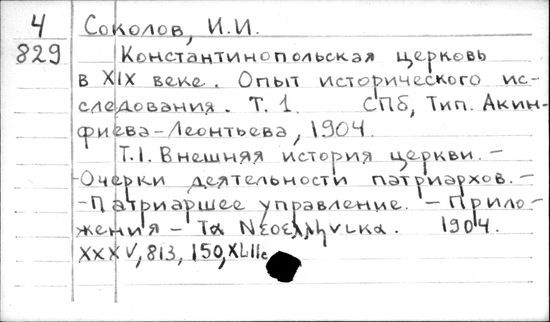 4 Соколов, И.И.
829 Константинопольская церковь
в XIX веке. Опыт исторического ис-
следования. Т. 1. СПб, Тип. Акин-
фиева-Леонтьева, 1904.
Т.1. Внешняя история церкви. –
-Очерки деятельности патриархов. –
-Патриаршее управление. – Прило-
жения – Τα Νεοελληνικα. 1904.
XXXV, 813, 150, XLIIс